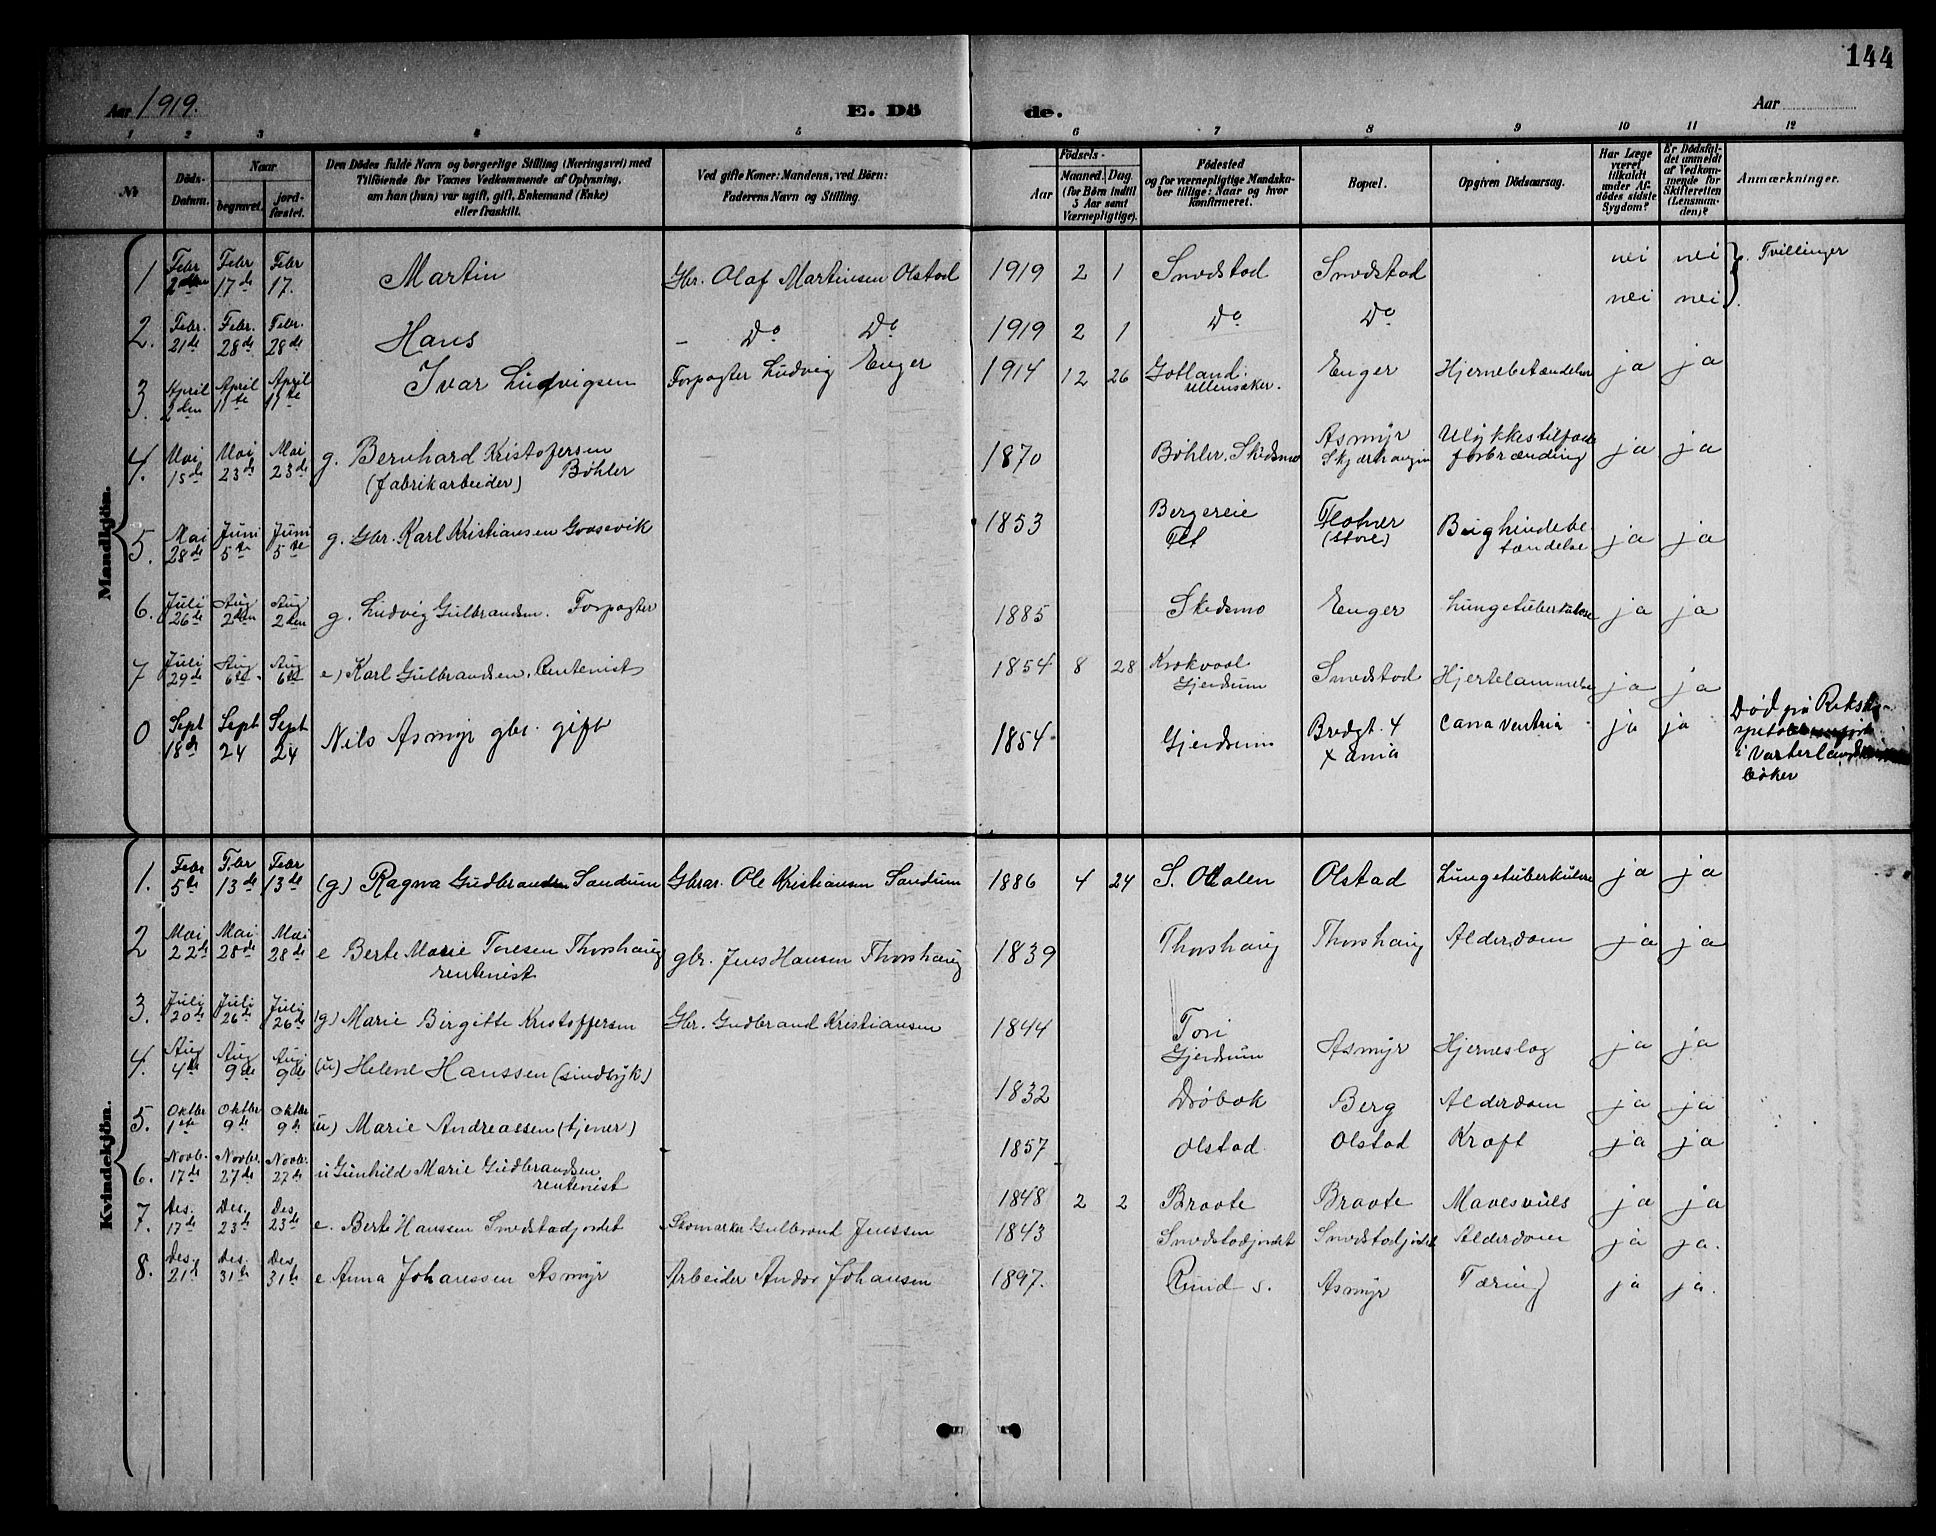 144
Aar 1919. E. Dö de. Aar
1 2 3 4 5 6 7 8 9 10 11 12
No. Döds-Datum. Naar begravet. jord-fæstet. Den Dödes fulde Navn og borgerlige Stilling (Næringsvei) med Tilföiende for Voxnes Vedkommende af Oplysning, om han (hun) var ugift, gift, Enkemand (Enke) eller fraskilt. Ved gifte Koner: Mandens, ved Börn: Faderens Navn og Stilling. Födsels- Aar Maaned. Dag. (for Börn indtil 5 Aar samt Værnepligtige). Födested og for værnepligtige Mandska-ber tillige: Naar og hvor konfirmeret. Bopæl. Opgiven Dödsaarsag. Har Læge været tilkaldt under Af-dödes sidste Sygdom? Er Dödsfal-det anmeldt af Vedkom-mende for Skifteretten (Lensman-den)? Anmærkninger.
Mandkjön.
1 Febr 2den Febr 17de Febr 17. Martin Gbr. Olaf Martinsen Olstad 1919 2 1 Smedstad Smedstad nei nei Tvillinger
2. Febr. 21de Febr. 28de Febr. 28de Hans - Do Do 1919 2 1 Do Do nei nei
3. April 2den April 11te April 11te Ivar Ludvigsen Forpagter Ludvig Enger 1914 12 26 Gotland Ullensaker. Enger Hjernebetændelse ja ja
4. Mai 15de Mai 23de Mai 23de g. Bernhard Kristofersen Bøhler (fabrikarbeider) 1870 Bøhler, Skedsmo Asmyr Skjærhaugen Ulykkestilfælde forbrænding ja ja
5. Mai 28de Juni 5te Juni 5te g. Gbr. Karl Kristiansen 1853 Bergereie Fet Flotner (store) Brighindebetændelse ja ja
6. Juli 26de Aug 2den Aug 2den g. Ludvig Gulbrandsen. Forpagter 1885 Skedsmo Enger Lungetuberkulose ja ja
7 Juli 29de Aug 6te Aug 6te e) Karl Gulbrandsen, Rentenist 1854 8 28 Krokvaal Gjerdrum Smedstad Hjertelammelse ja ja
0 Sept 18de Sept 24 Sept 24 Nils Asmyr gbr. gift 1854 Gjerdrum Bredgt. 4 Xania ja ja Død på Rikshospitalet i Vaterlands bøker
Kvindekjön.
1. Febr 5te Febr 13de Febr 13de (g) Ragna Gudbrandsen Sandum Gbrar. Ole Kristiansen Sandum 1886 4 24 S. Odalen Olstad Lungetuberkulose ja ja
2 Mai 22de Mai 28de Mai 28de e Berte Marie Toresen Thorshaug rentenist gbr. Jens Hansen Thorshaug 1839 Thorshaug Thorshaug Alderdom ja ja
3. Juli 20de Juli 26de Juli 26de (g) Marie Birgitte Kristoffersen Gbr. Gudbrand Kristiansen 1844 Gjerdrum Asmyr Hjerneslag ja ja
4. Aug 4de Aug 9de Aug 9de (u) Helene Hanssen (sindsyk) 1832 Drøbak Berg Alderdom ja ja
5. Oktbr 1ste Oktbr 9de Oktbr 9de (u) Marie Andreassen (tjener) 1857 Olstad Olstad Kræft ja ja
6. Novbr. 17de Novbr. 27de Novbr. 27de u Gunhild Marie Gudbrandsen rentenist 1848 2 2 Braate Braate Mavesvuls ja ja
7. Des. 17de Des. 23de Des. 23de e. Berte Hanssen Smedstadjordet Skomaker Gulbrand Jenssen 1843 Smedstadjordet Smedstadjordet Alderdom ja ja.
8. Des. 21de Des. 31te Des. 31te e Anna Johanssen Asmyr Arbeider Johansen 1897. Rund s. Asmyr Tæring ja ja.